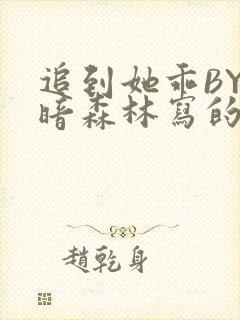 追到她乖BY
暗森林寫的
趙乾身